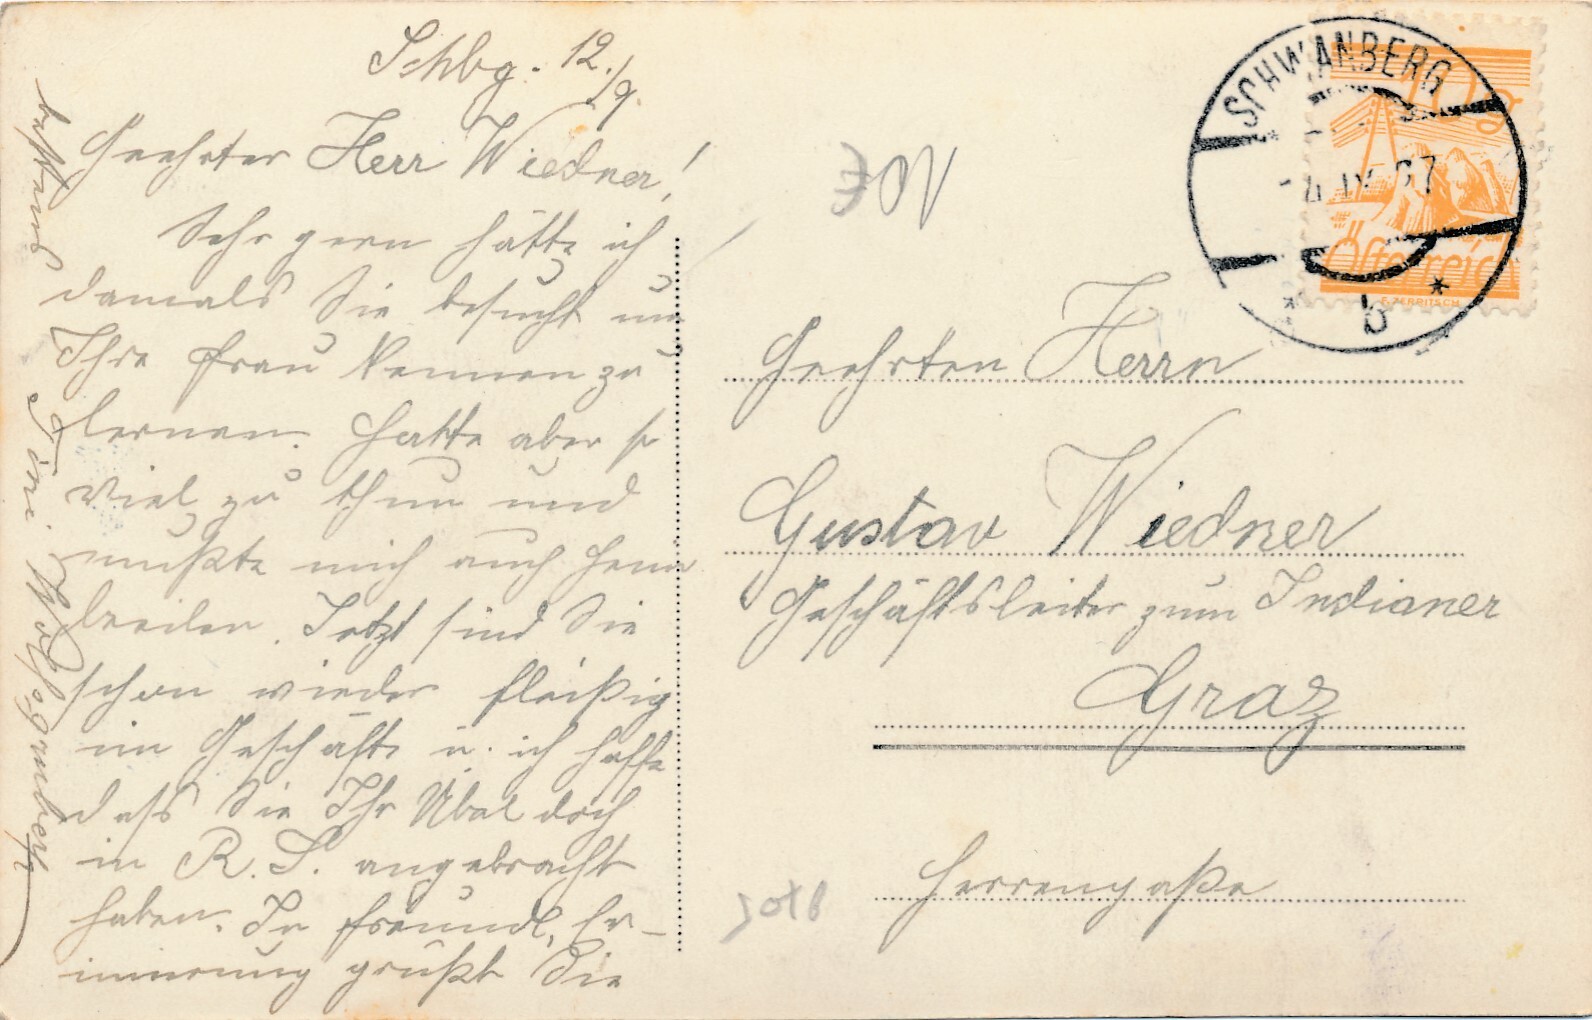 Schbg. 12./9.
Geehrter Herr Wiedner!
Sehr gern hätte ich
damals Sie besucht um
Ihre Frau Kennen zu
lernen. Hatte aber so
viel zu thun und
mußte mich auch heim
beeilen. Jetzt sind Sie
schon wieder fleißig
im Geschäft u. ich hoffe
dass Sie Ihr Übel doch
in R. S. angebracht
haben. In freundl. Er-
innerung grüßt Sie
bestens Toni
SCHWANBERG
b
10g
Österreich
Geehrten Herrn
Gustav Wiedner
Geschäftsleiter zum Indianer
Graz
Herrengaße